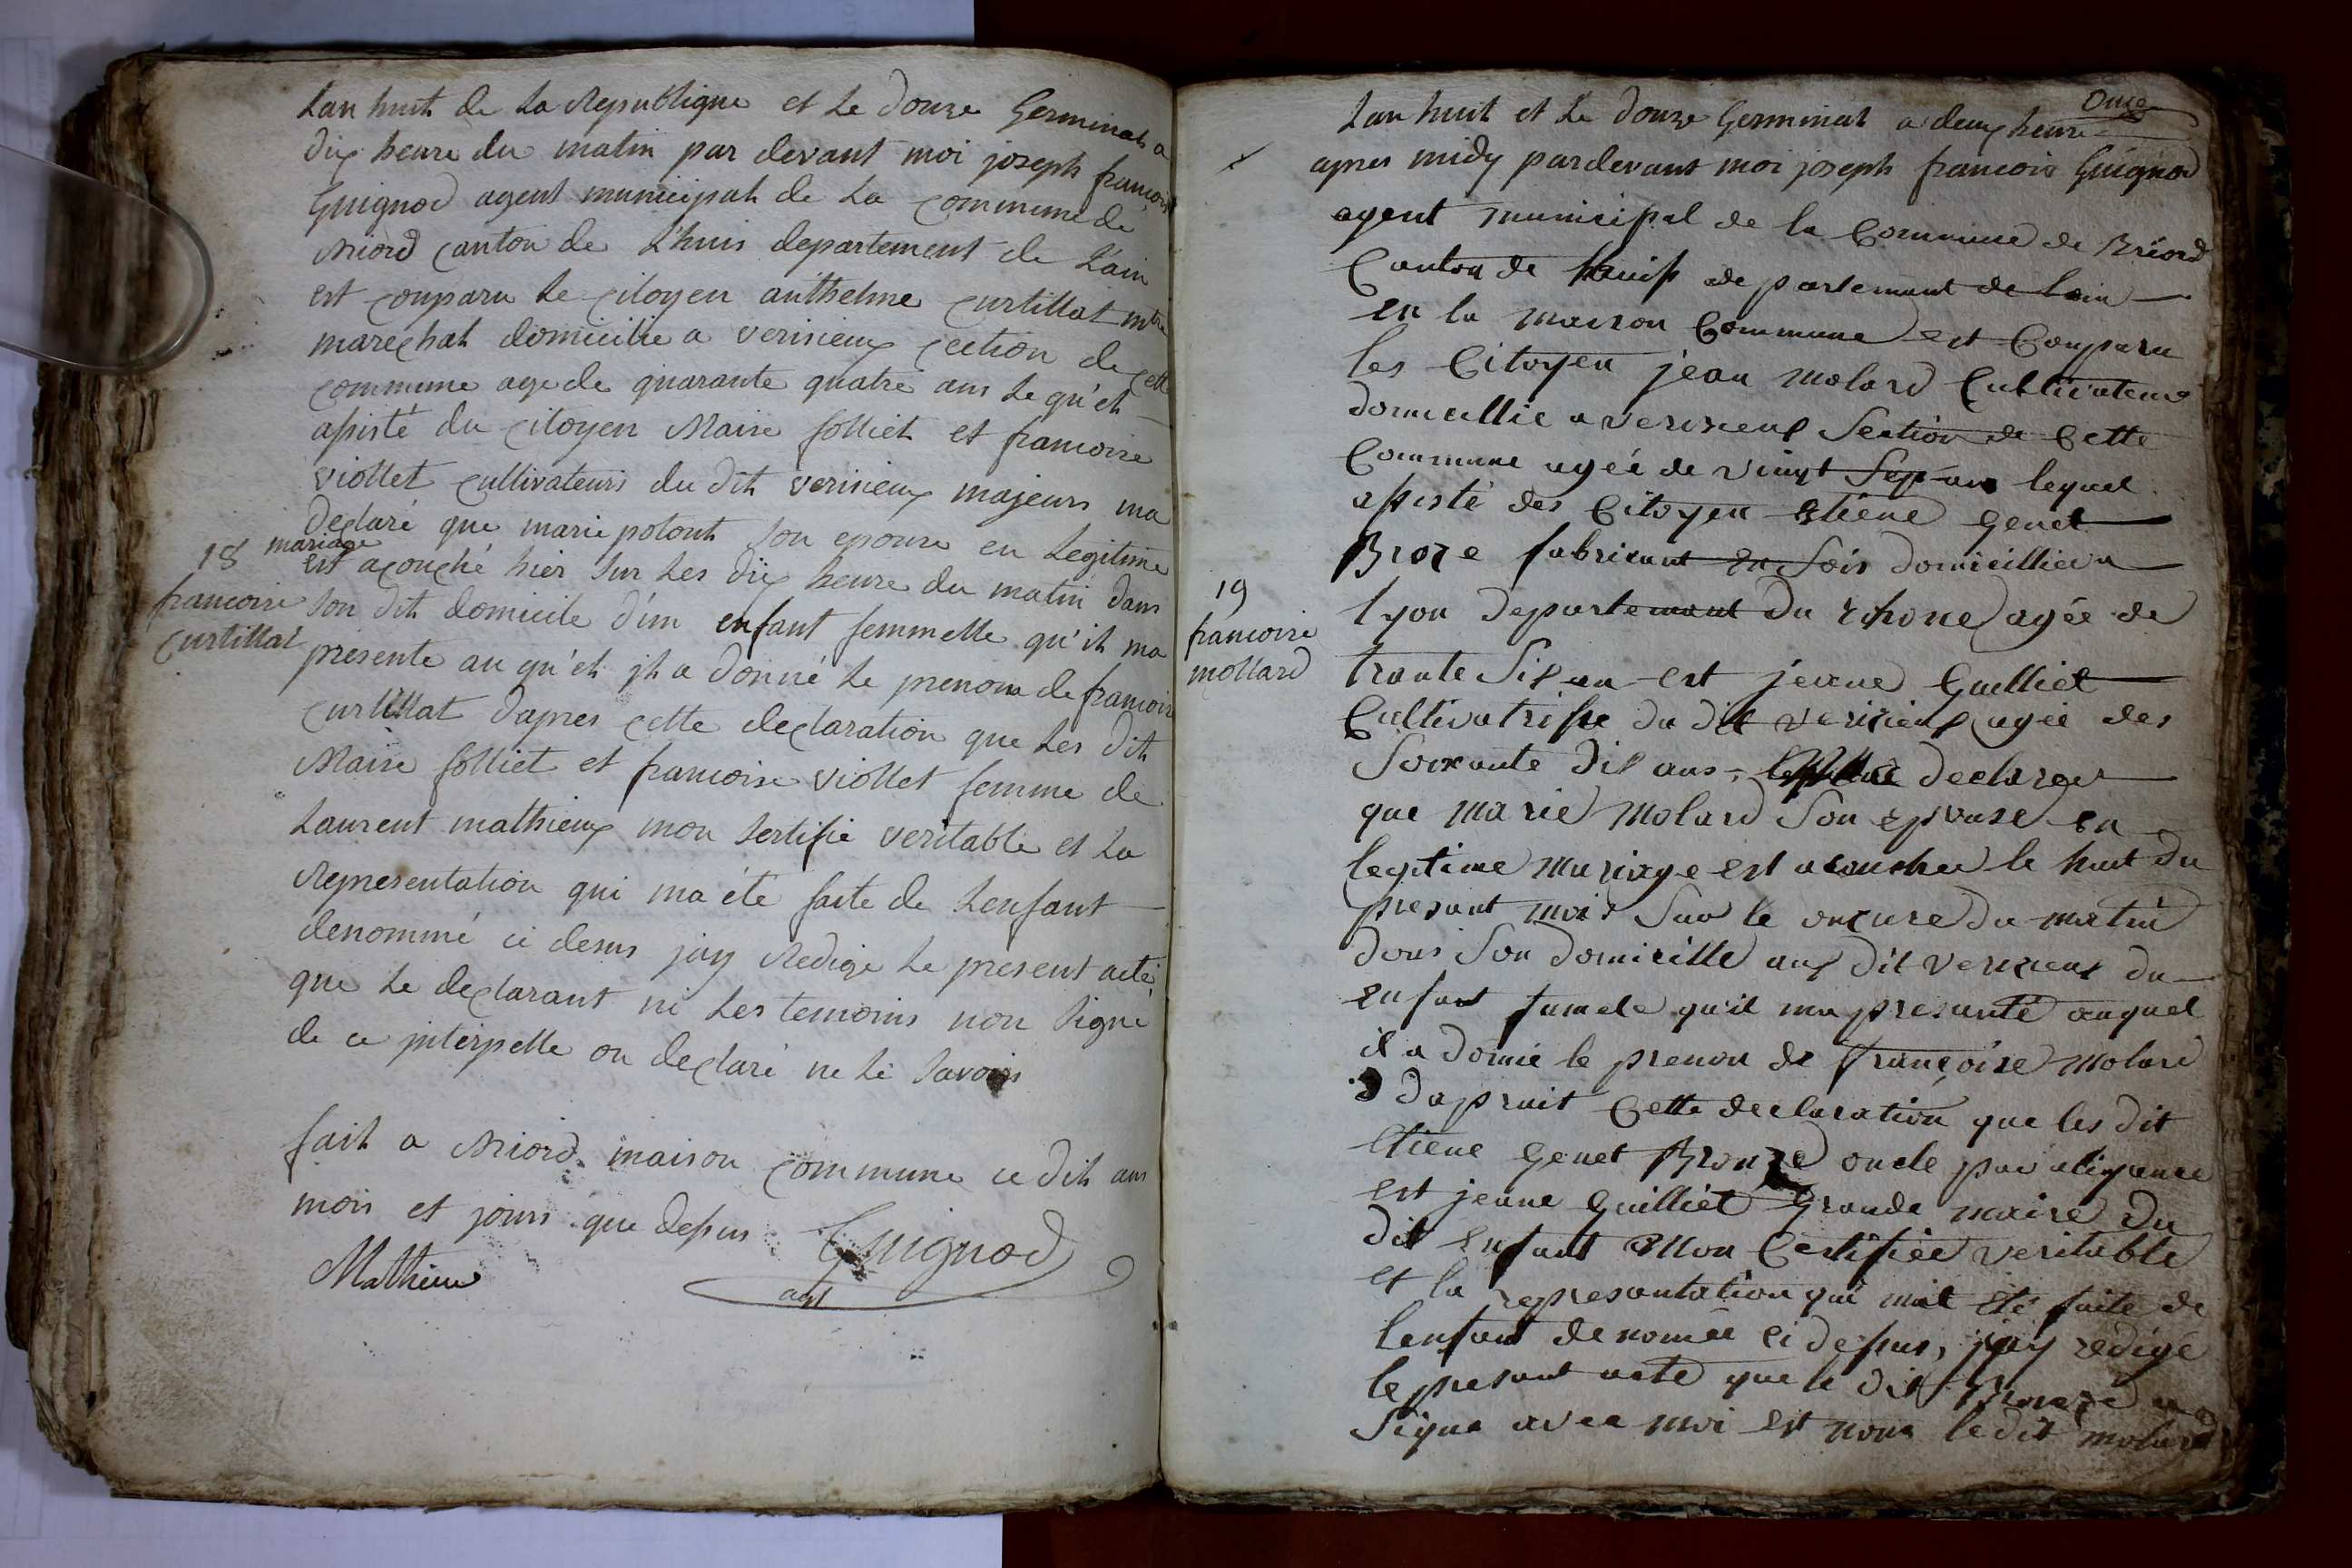 Lan huit de La Republique et Le douze Germinal a
dix heure du matin par devant moi joseph françois
Guignod agent municipal de La commune de
Briord canton de L'huis departement de L'ain
est comparu Le citoyen anthelme curtillat mtre
marechal domicilie a verisieux section de cette
commune age de quarante quatre ans Le qu'el
assisté du citoyen Maire folliet et francoise
viollet cultivateurs du dit verisieux majeurs ma
declaré que marie polout son epouse en Legitime
mariage
est acouché hier sur Les dix heure du matin dans
18
francoise
curtillat
son dit domicile d'un enfant femmelle qu'il ma
presente au qu'el jl a donné Le prenom de francoise
curtillat dapres cette declaration que Les dit
Maire folliet et francoise viollet femme de
Laurent mathieux mon sertifie veritable et La
Representation qui ma été faite de Lenfant
denommé ci desus jay Redige Le present acte
que Le declarant ni Les temoins non signe
de ce jnterpelle on declaré ne Le savoir
fait a Briord maison commune ce dit ans
mois et jours que dessus
Guignod
agt
Mathieu
Onze
Lan huit et Le douze Germinal a deux heure
apres midy pardevant moi joseph francois Guignod
agent municipal de la Commune de Briord
Canton de departemant de lain
en la maison Commune est Comparu
les Citoyen jean molard Cultivateur
domicillie a verisieux Section de Cette
Commune agée de vingt Sep ans lequel
assisté des Citoyen etiene Genet
Broze fabricant en Sois domicillié a
lyon departemant du rhone agée de
19
francoise
mollard
trante Six an est jeane Guilliet
Cultivatrisse du dit verisieux agée des
Soixante dix ans, declarer
que marie molard Son epouse en
legitime mariage est acouchee le huit du
presant mois Sur le onzure du matin
dans Son domicille aux dit verisieux du
enfant fumele qu'il ma presanté auquel
il a donné le prenom de françoise molard
daprait Cette declaration que les dit
etiene Genet Bronze oncle par aliyance
est jeane Guilliet Grande maire du
dit enfant mon Certifiée veritable
et la represantation qui mat été faite de
lenfant denomée ci dessus, jay redigé
le presant acte que le dit Bronze a
Signe avec moi est nom ledit molard